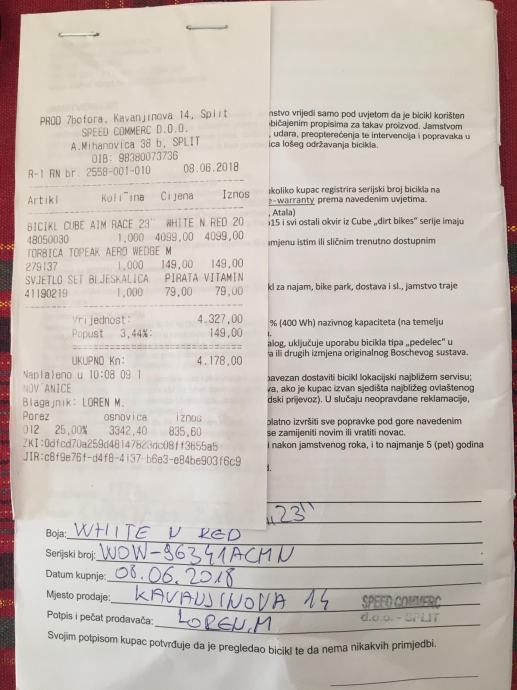 PROD 7bofora, Kavanjinova 14, Split
SPEED COMMERC D.O.O.
A.Mihanovica 38 b, SPLIT
OIB: 98380073736
R-1 RN br. 2558-001-010 08.06.2018
Artikl Koli~ina Cijena Iznos
BICIKL CUBE AIM RACE 23" WHITE N RED 20
48050030 1,000 4099,00 4099,00
TORBICA TOPEAK AERO WEDGE M
279137 1,000 149,00 149,00
SVJETLO SET BLJESKALICA PIRATA VITAMIN
41190219 1,000 79,00 79,00
Vrijednost: 4.327,00
Popust 3,44%: 149,00
UKUPNO Kn: 4.178,00
Naplaćeno u 10:08 09 1
NOV^ANICE
Blagajnik: LOREN M.
Porez osnovica iznos
012 25,00% 3342,40 835,60
ZKI:0dfcd70a259d48147823dc08ff3655a5
JIR:c8f9e76f-d4f8-4137-b6e3-e84be903f6c9
mstvo vrijedi samo pod uvjetom da je bicikl korišten
običajenim propisima za takav proizvod. Jamstvom
, udara, preopterećenja te intervencija i popravaka u
ica lošeg održavanja bicikla.
ukoliko kupac registrira serijski broj bicikla na
e-warranty prema navedenim uvjetima.
, Atala)
15 i svi ostali okvir iz Cube „dirt bikes" serije imaju
mjenu istim ili sličnim trenutno dostupnim
kl za najam, bike park, dostava i sl., jamstvo traje
% (400 Wh) nazivnog kapaciteta (na temelju
alog, uključuje uporabu bicikla tipa „pedelec" u
a ili drugih izmjena originalnog Boschevog sustava.
bavezan dostaviti bicikl lokacijski najbližem servisu;
va, ako je kupac izvan sjedišta najbližeg ovlaštenog
dski prijevoz). U slučaju neopravdane reklamacije,
platno izvršiti sve popravke pod gore navedenim
se zamijeniti novim ili vratiti novac.
i nakon jamstvenog roka, i to najmanje 5 (pet) godina
d.
„23"
Boja: WHITE N RED
Serijski broj: WOW-96341ACMN
Datum kupnje: 08.06.2018
Mjesto prodaje: KAVANJINOVA 14
SPEED COMMERC
d.o.o. - SPLIT
Potpis i pečat prodavača: LOREN.M
Svojim potpisom kupac potvrđuje da je pregledao bicikl te da nema nikakvih primjedbi.